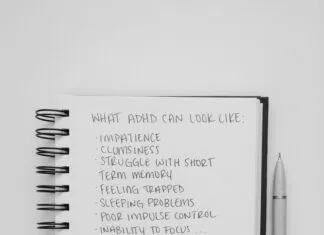 WHAT ADHD CAN LOOK LIKE:
· IMPATIENCE
· CLUMSINESS
· STRUGGLE WITH SHORT
TERM MEMORY
· FEELING TRAPPED
· SLEEPING PROBLEMS
· POOR IMPULSE CONTROL
· INABILITY TO FOCUS ...